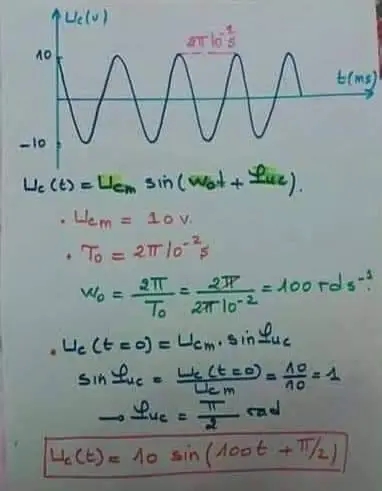 Uc(v)
2π10⁻²s
10
t(ms)
-10
Uc(t) = Ucm sin(w₀t + φuc).
• Ucm = 10 v.
• T₀ = 2π10⁻² s
w₀ = 2π/T₀ = 2π/2π10⁻² = 100 rd s⁻¹.
• Uc(t=0) = Ucm. sin φuc
sin φuc = Uc(t=0)/Ucm = 10/10 = 1
→ φuc = π/2 rad
Uc(t) = 10 sin(100t + π/2)